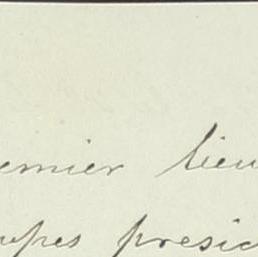 emier lieu
upes presid